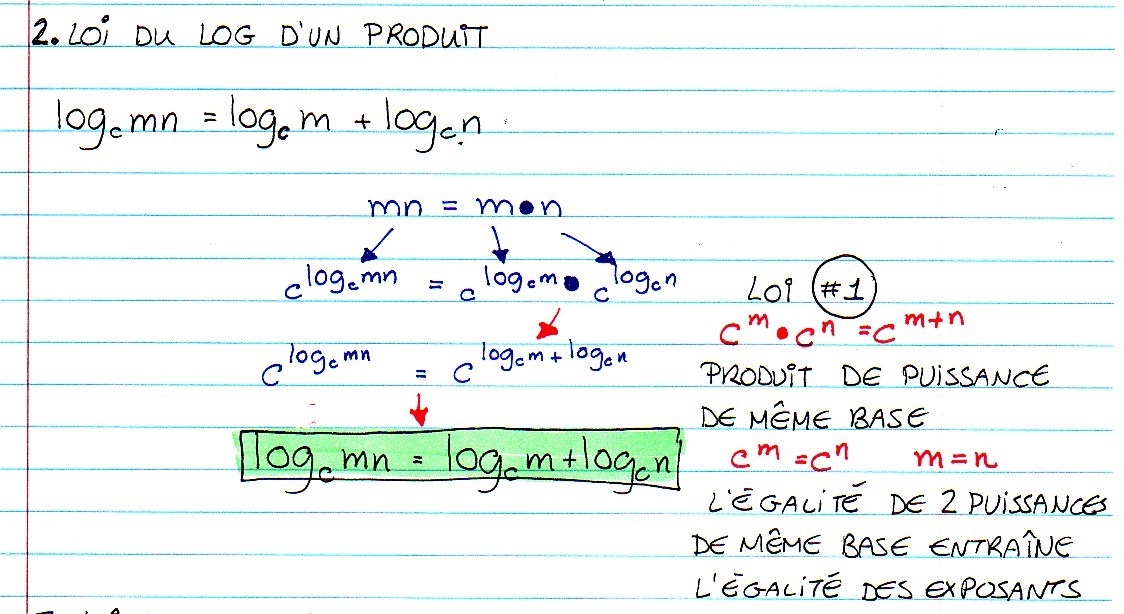 2. LOI DU LOG D'UN PRODUIT
log_c mn = log_c m + log_c n
mn = m•n
c^(log_c mn) = c^(log_c m) • c^(log_c n)
LOI #1
c^m • c^n = c^(m+n)
c^(log_c mn) = c^(log_c m + log_c n)
PRODUIT DE PUISSANCE
DE MÊME BASE
log_c mn = log_c m + log_c n
c^m = c^n m = n
L'ÉGALITÉ DE 2 PUISSANCES
DE MÊME BASE ENTRAÎNE
L'ÉGALITÉ DES EXPOSANTS